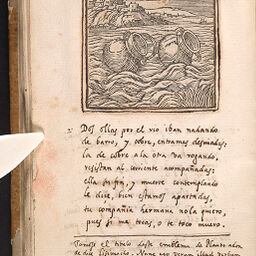 Dos ollas por el rio iban nadando
de barro, y cobre, entramas desviadas;
la de cobre a la otra va rogando,
resistan al corriente acompañadas;
ella su fin, y muerte contemplando
le dice, bien estamos apartadas,
tu compañia hermana no la quero,
pues si me tocas, o te toco muero.
Tomase el titulo deste emblema de Plauto